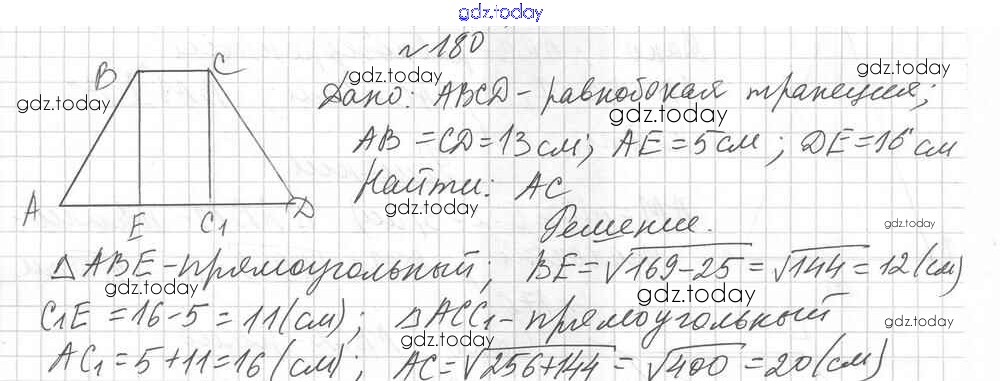 gdz.today
№180
B C
gdz.today
gdz.today
gdz.today
Дано: ABCD - равнобокая трапеция;
gdz.today
AB = CD = 13 см; AE = 5 см; DE = 16 см
Найти: AC
A E C₁ D
gdz.today
gdz.today
Решение.
△ABE - прямоугольный; BE = √169-25 = √144 = 12 (см)
gdz.today
gdz.today
C₁E = 16 - 5 = 11 (см); △ACC₁ - прямоугольный
gdz.today
gdz.today
AC₁ = 5 + 11 = 16 (см); AC = √256+144 = √400 = 20 (см)